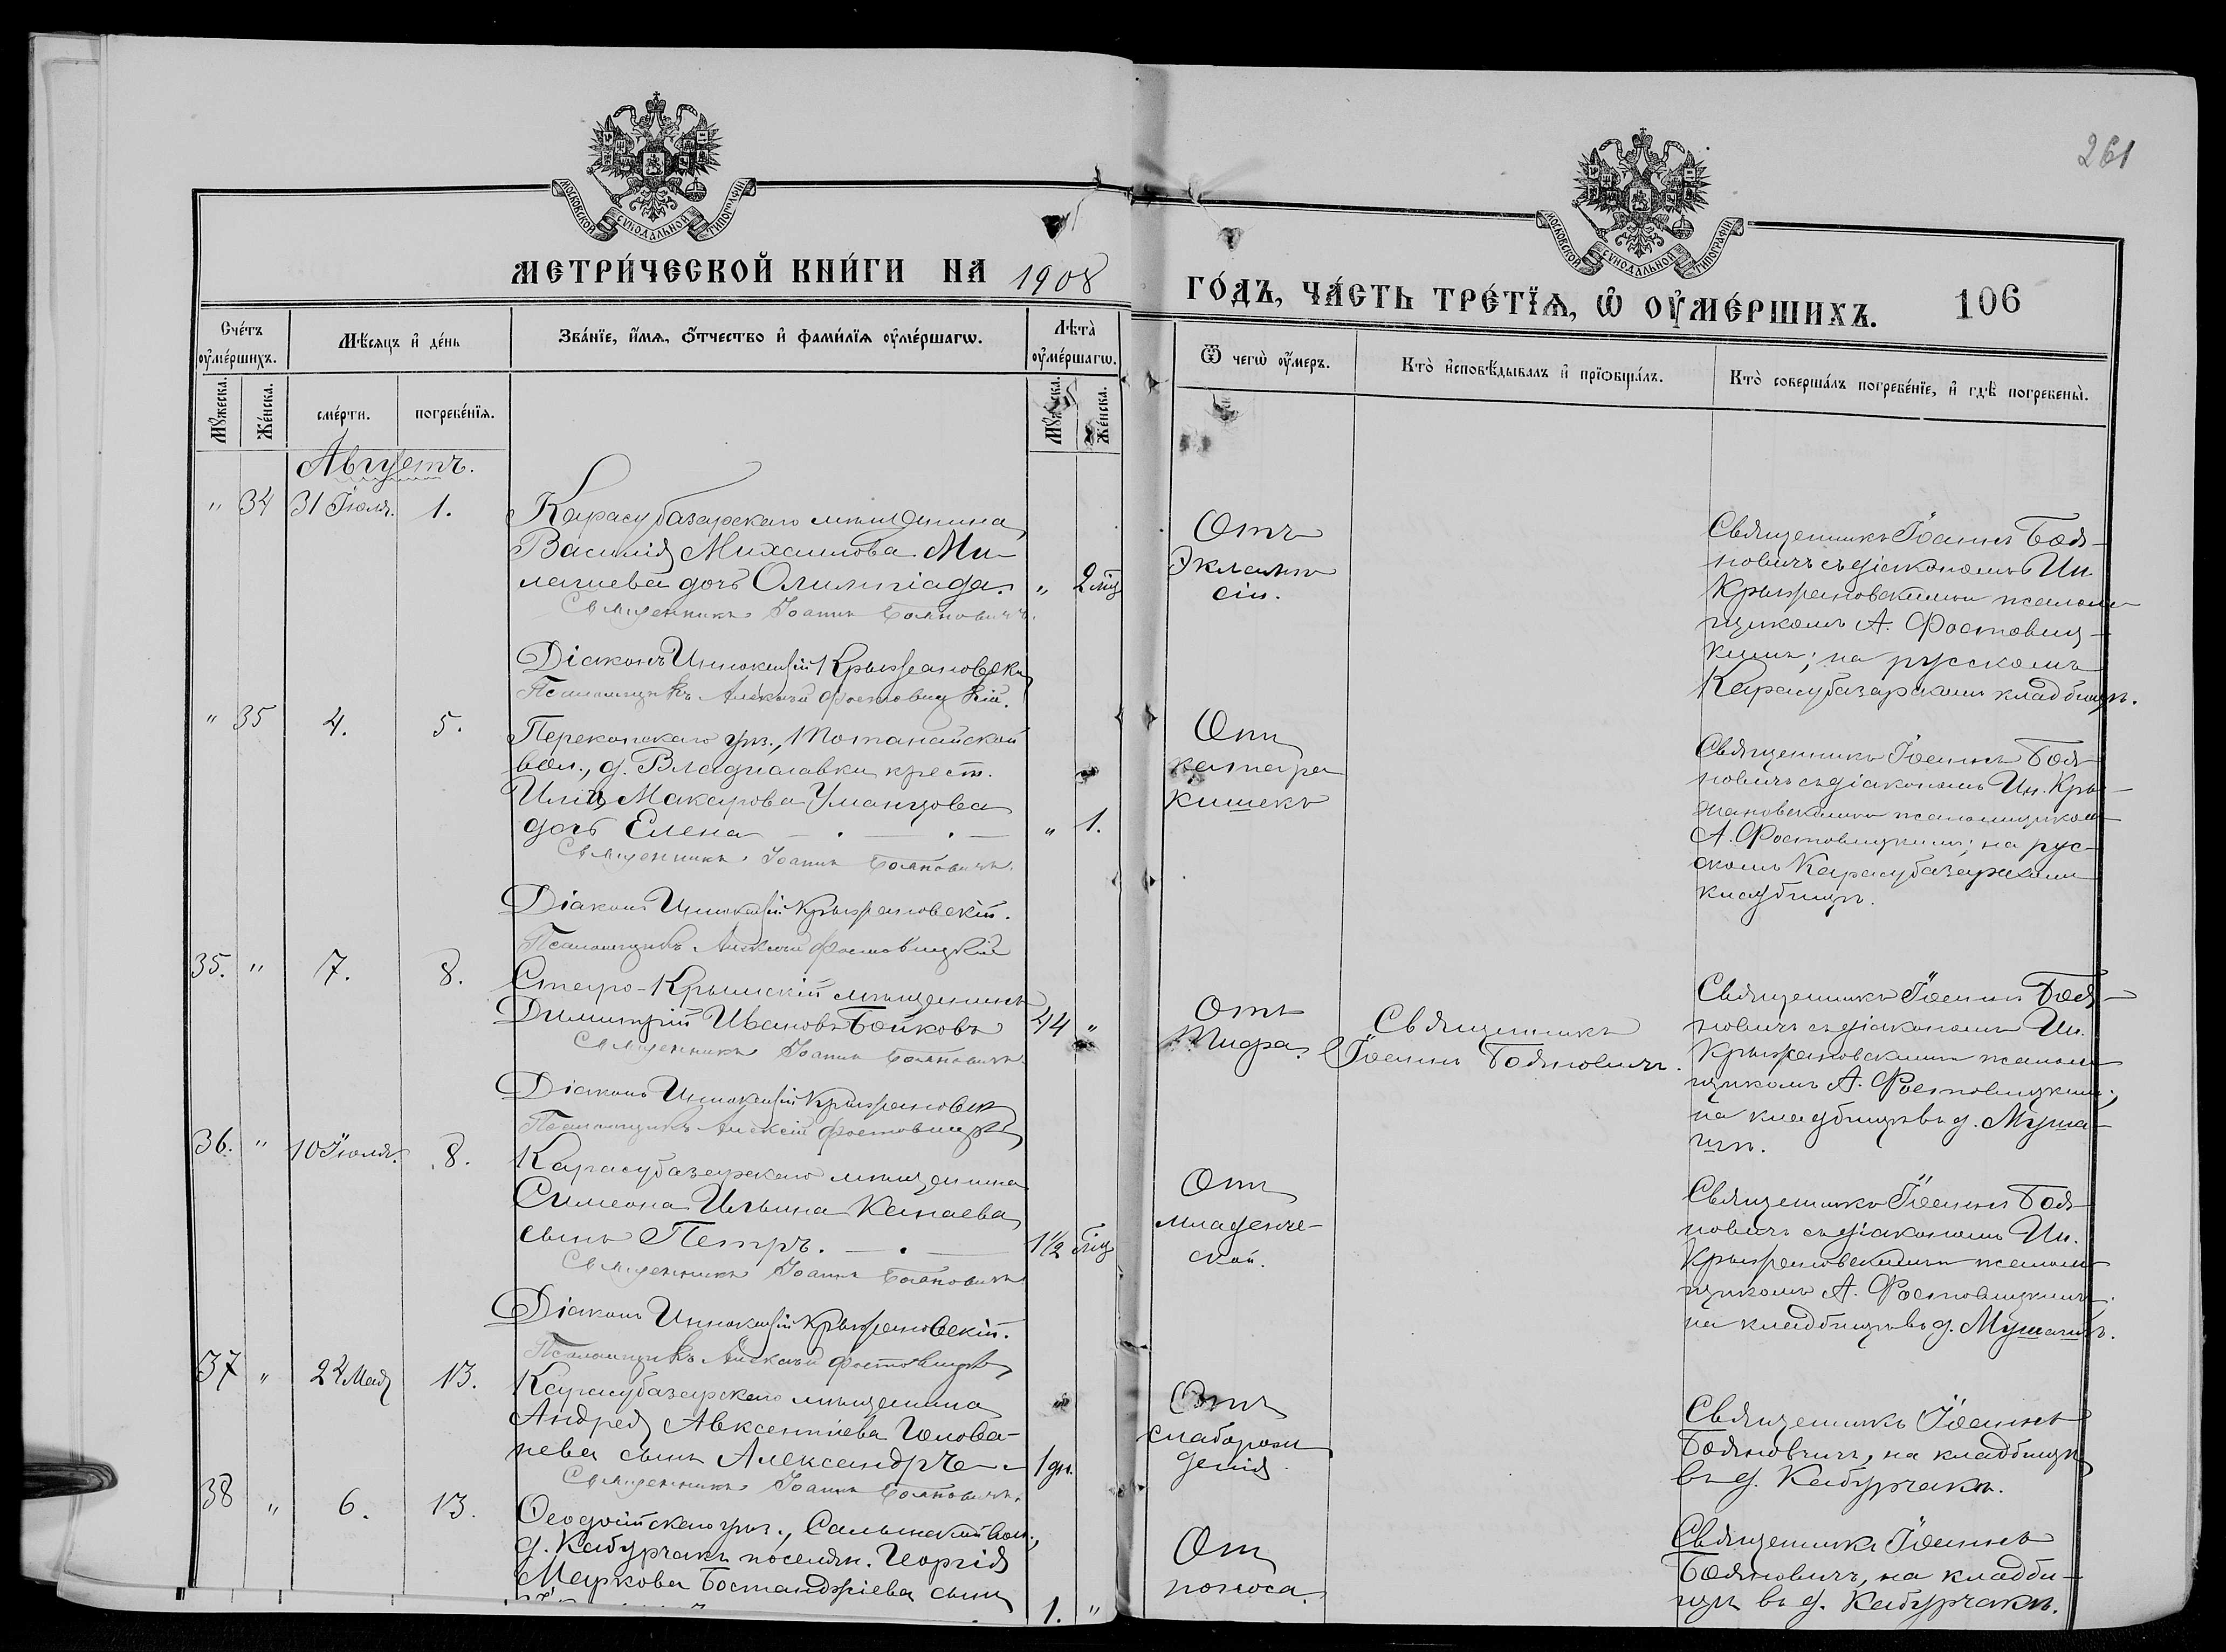 261
МОСКОВСКОЙ СУНОДАЛЬНОЙ ТИПОГРАФІИ
МОСКОВСКОЙ СУНОДАЛЬНОЙ ТИПОГРАФІИ
МЕТРИ́ЧЕСКОЙ КНИ́ГИ НА 1908
ГО́ДЪ, ЧА́СТЬ ТРЕ́ТЇѦ, Ѡ ОУ҆МЕ́РШИХЪ. 106
Сче́тъ оу҆ме́ршихъ.
Мѣ́сяцъ и҆ де́нь
Зва́нїе, и҆́мѧ, ѻ҆́тчество и҆ фами́лїѧ оу҆ме́ршагѡ.
Лѣ́та оу҆ме́ршагѡ.
Ѿ чегѡ̀ оу҆́меръ.
Кто̀ и҆сповѣ́дывалъ и҆ прїѡбща́лъ.
Кто̀ соверша́лъ погребе́нїе, и҆ гдѣ̀ погребены̀.
Мꙋ́жеска. Же́нска.
сме́рти.
погребе́нїя.
Мꙋ́жеска. Же́нска.
Августъ.
" 34 31 Іюля. 1.
Карасубазарскаго мѣщанина
Василія Михаилова Ми-
лашева дочь Олимпіада. " 2 мц
Священникъ Іоаннъ Бояновичъ.
Діаконъ Иннокентій Крыжановскій
Псаломщикъ Алексѣй Фостовицкій.
Отъ
Эклямп
сіи.
Священникъ Іоаннъ Боя-
новичъ съ діакономъ Ин.
Крыжановскимъ и псалом
щикомъ А. Фостовиц-
кимъ; на русскомъ
Карасубазарскомъ кладбищѣ.
" 35 4. 5.
Перекопскаго уѣз.,
вол., д. Владиславки крест.
Иліи Макарова Уманцова
дочь Елена — . — . — " 1.
Священникъ Іоаннъ Бояновичъ.
Діаконъ Иннокентій Крыжановскій.
Псаломщикъ Алексѣй Фостовицкій
Отъ
катара
кишекъ
Священникъ Іоаннъ Боя-
новичъ съ діакономъ Ин. Кры-
жановскимъ и псаломщикомъ
А. Фостовицкимъ; на рус-
скомъ Карасубазарскомъ
кладбищѣ.
35. " 7. 8.
Старо-Крымскій мѣщанинъ
Димитрій Ивановъ Бойковъ 44 "
Священникъ Іоаннъ Бояновичъ
Діаконъ Иннокентій Крыжановск
Псаломщикъ Алексѣй Фостовицкій
Отъ
Тифа.
Священникъ
Іоаннъ Бояновичъ.
Священникъ Іоаннъ Боя-
новичъ съ діакономъ Ин.
Крыжановскимъ и псалом
щикомъ А. Фостовицкимъ;
на кладбищѣ въ д. Муша-
шѣ.
36. " 10 Іюля. 8.
Карасубазарскаго мѣщанина
Симеона Ильина Канаева
сынъ Петръ. — . — 1½
Священникъ Іоаннъ Бояновичъ
Діаконъ Иннокентій Крыжановскій.
Псаломщикъ Алексѣй Фостовицкій
Отъ
младенче-
ской.
Священникъ Іоаннъ Боя-
новичъ съ діакономъ Ин.
Крыжановскимъ и псалом
щикомъ А. Фостовицкимъ.
на кладбищѣ въ д. Мушашѣ.
37 " 24 Мая 13.
Карасубазарскаго мѣщанина
Андрея Авксентіева Голова-
нева сынъ Александръ — 1 дн.
Священникъ Іоаннъ Бояновичъ.
Отъ
слаборож
денія
Священникъ Іоаннъ
Бояновичъ, на кладбищѣ
въ д. Кабурчакъ.
38 " 6. 13.
Ѳеодосійскаго уѣз., Салынской вол.,
д. Кабурчакъ поселян. Георгія
Маркова Бостанджіева сынъ
1. "
Отъ
поноса.
Священникъ Іоаннъ
Бояновичъ, на кладби-
щѣ въ д. Кабурчакъ.